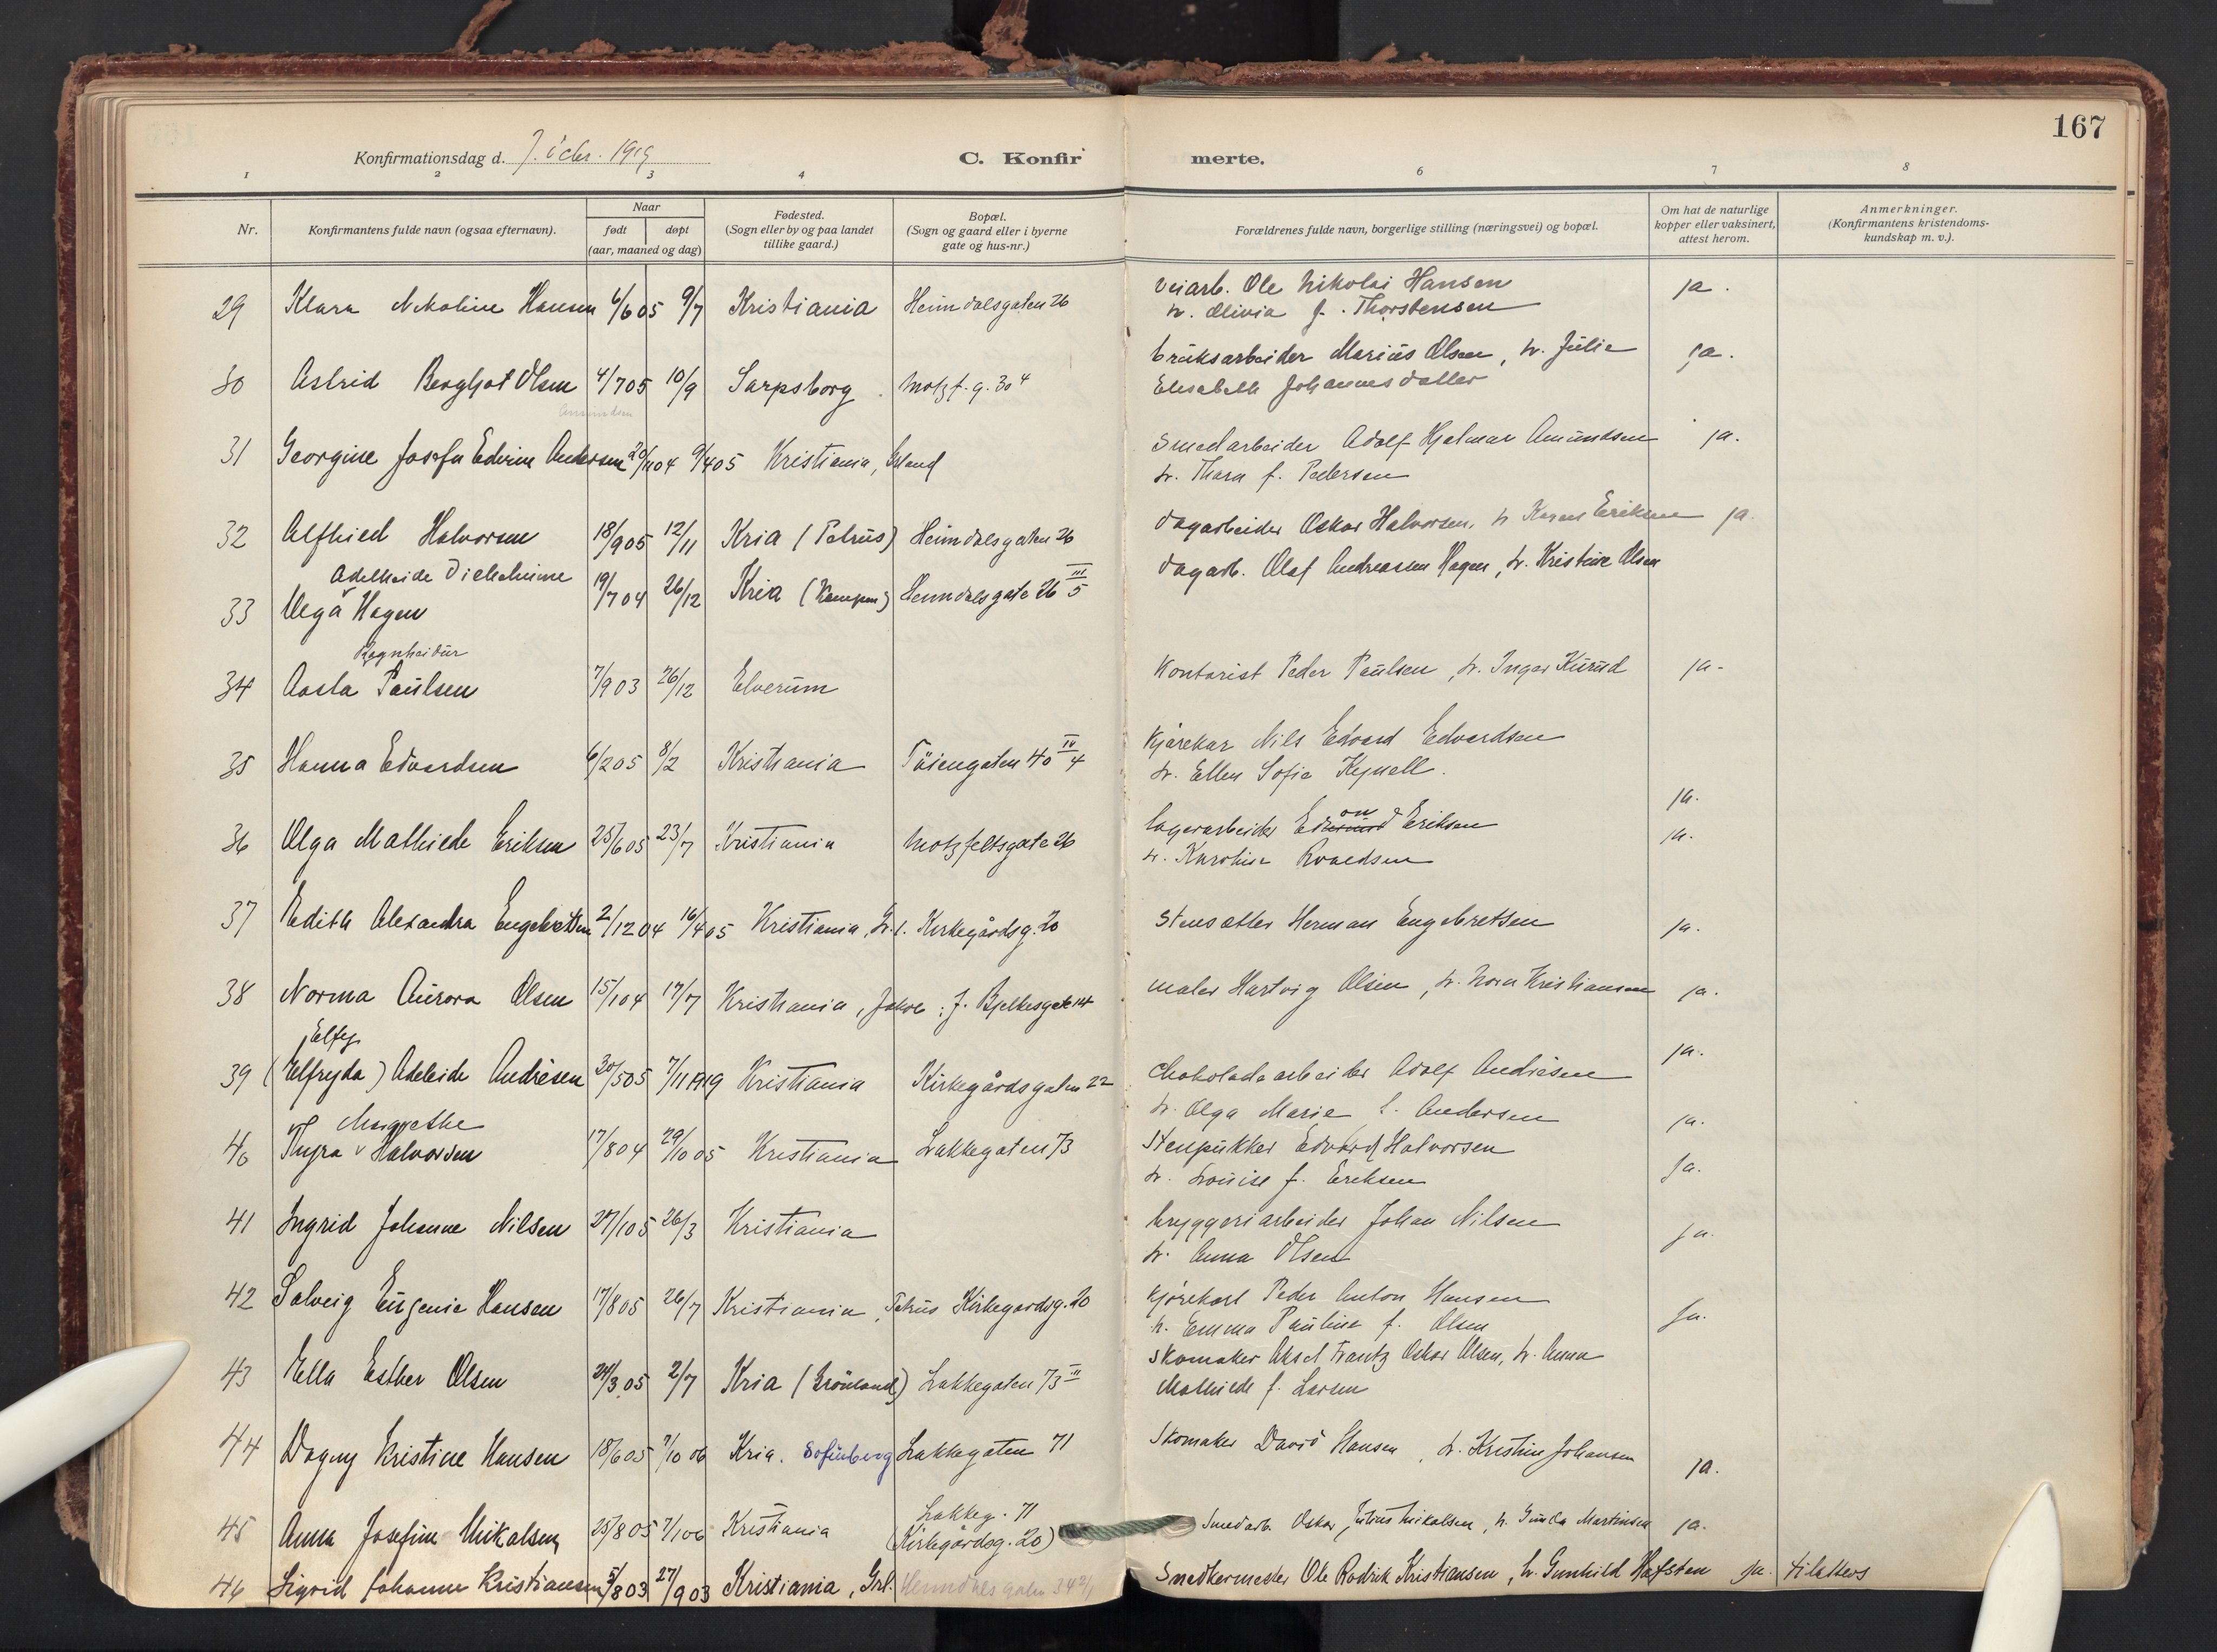 167
Konfirmationsdag d. 7. 1919
C. Konfirmerte.
1 2 3 4 6 7 8
Nr.
Konfirmantens fulde navn (ogsaa efternavn).
Naar
født
døpt
(aar, maaned og dag)
Fødested.
(Sogn eller by og paa landet
tillike gaard.)
Bopæl.
(Sogn og gaard eller i byerne
gate og hus-nr.)
Forældrenes fulde navn, borgerlige stilling (næringsvei) og bopæl.
Om hat de naturlige
kopper eller vaksinert,
attest herom.
Anmerkninger.
(Konfirmantens kristendoms-
kundskap m. v.).
29 Klara Nikoline Hansen 6/6 05 9/7 Kristiania Heimdalsgaten 26 Veiarb. Ole Nikolai Hansen ja.
h. Olivia f. Thorstensen
30 Astrid Bergljot Olsen 4/7 05 10/9 Sarpsborg Motzf. g. 30 4 bruksarbeider Marius Olsen, h. Julie ja.
Elisabeth Johannesdatter
Amundsen
31 Georgine Josefa Edvine Andersen 20/11 04 9/4 05 Kristiania, Grland Smedarbeider Adolf Hjalmar Amundsen ja.
h. Thora f. Pedersen
32 Alfhild Halvorsen 18/9 05 12/11 Kria (Petrus) Heimdalsgaten 26 dagarbeider Oskar Halvorsen, h Karen Eriksen ja.
Adelheide
33 Olga Hagen 19/7 04 26/12 Kria (Kampen) Heimdalsgate 26 III 5 dagarb. Olaf Andreasen Hagen, h. Kristine Olsen
Ragnheidur
34 Aasta Paulsen 7/9 03 26/12 Elverum Kontorist Peder Paulsen, h. Inger Kurud ja.
35 Hanna Edvardsen 6/2 05 8/2 Kristiania Töiengaten 40 IV 4 Kjørekar Nils Edvard Edvardsen
h. Ellen Sofie
ja.
36 Olga Mathilde Eriksen 25/6 05 23/7 Kristiania Motzfeltsgate 26 lagerarbeider Eriksen ja.
h. Karoline
37 Edith Alexandra Engebretsen 2/12 04 16/4 05 Kristiania, Kirkegårdsg. 20 Stensætter Herman Engebretsen ja.
38 Norma Aurora Olsen 15/1 04 17/7 Kristiania, Jakob J. Bjelkesgate 14 maler Hartvig Olsen, h. Nora Kristiansen ja.
Elfy
39 (Elfryda) Adeleide Andrésen 30/5 05 7/11 1919 Kristiania Kirkegårdsgaten 22 Chokoladearbeider Adolf Andrésen ja.
h. Olga Marie f. Andersen
Margrethe
40 Thyra Halvorsen 17/8 04 29/10 05 Kristiania Lakkegaten 73 Stenpukker Edvard Halvorsen ja.
h. Louise f. Eriksen ja.
41 Ingrid Johanne Nilsen 27/1 05 26/3 Kristiania bryggeriarbeider Johan Nilsen ja.
h. Anna Olsen
42 Solveig Eugenie Hansen 17/8 05 26/7 Kristiania, Petrus Kirkegårdsg. 20 Kjørekarl Peder Anton Hansen ja.
h. Emma Pauline f. Olsen
43 Ella Esther Olsen 24/3 05 2/7 Kria (Grönland) Lakkegaten 73 II Skomaker Aksel Frantz Oskar Olsen, h. Anna
Mathilde f. Larsen
44 Dagny Kristine Hansen 18/6 05 7/10 06 Kria. Sofienberg Lakkegaten 71 Skomaker David Hansen, h. Kristine Johansen ja.
Lakkeg. 71
45 Anna Josefine Mikalsen 25/8 05 7/1 06 Kristiania (Kirkegårdsg. 20) Smedarb. Oskar Julius Mikalsen, h. Gunda Martinsen ja.
46 Sigrid Johanne Kristiansen 5/8 03 27/9 03 Kristiania, Grl. Heimdalsgaten 34 Snedkermester Ole Rodrik Kristiansen, h. Gunhild Hafsten ja.